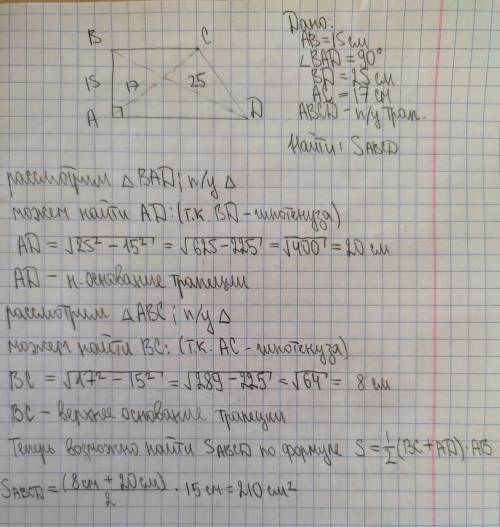 Дано:
AB=15см
∠BAD=90°
BD=25см
AC=17см
ABCD-п/у трап.
Найти: SABCD
B C
15 17 25
A D
рассмотрим △BAD; п/у △
можем найти AD: (т.к. BD-гипотенуза)
AD = √25² - 15² = √625-225 = √400 = 20 см
AD - н. основание трапеции
рассмотрим △ABC; п/у △
можем найти BC: (т.к. AC-гипотенуза)
BC = √17² - 15² = √289-225 = √64 = 8 см
BC - верхнее основание трапеции
Теперь возможно найти SABCD по формуле S=1/2(BC+AD)·AB
SABCD= (8см+20см)/2 · 15 см = 210 см²